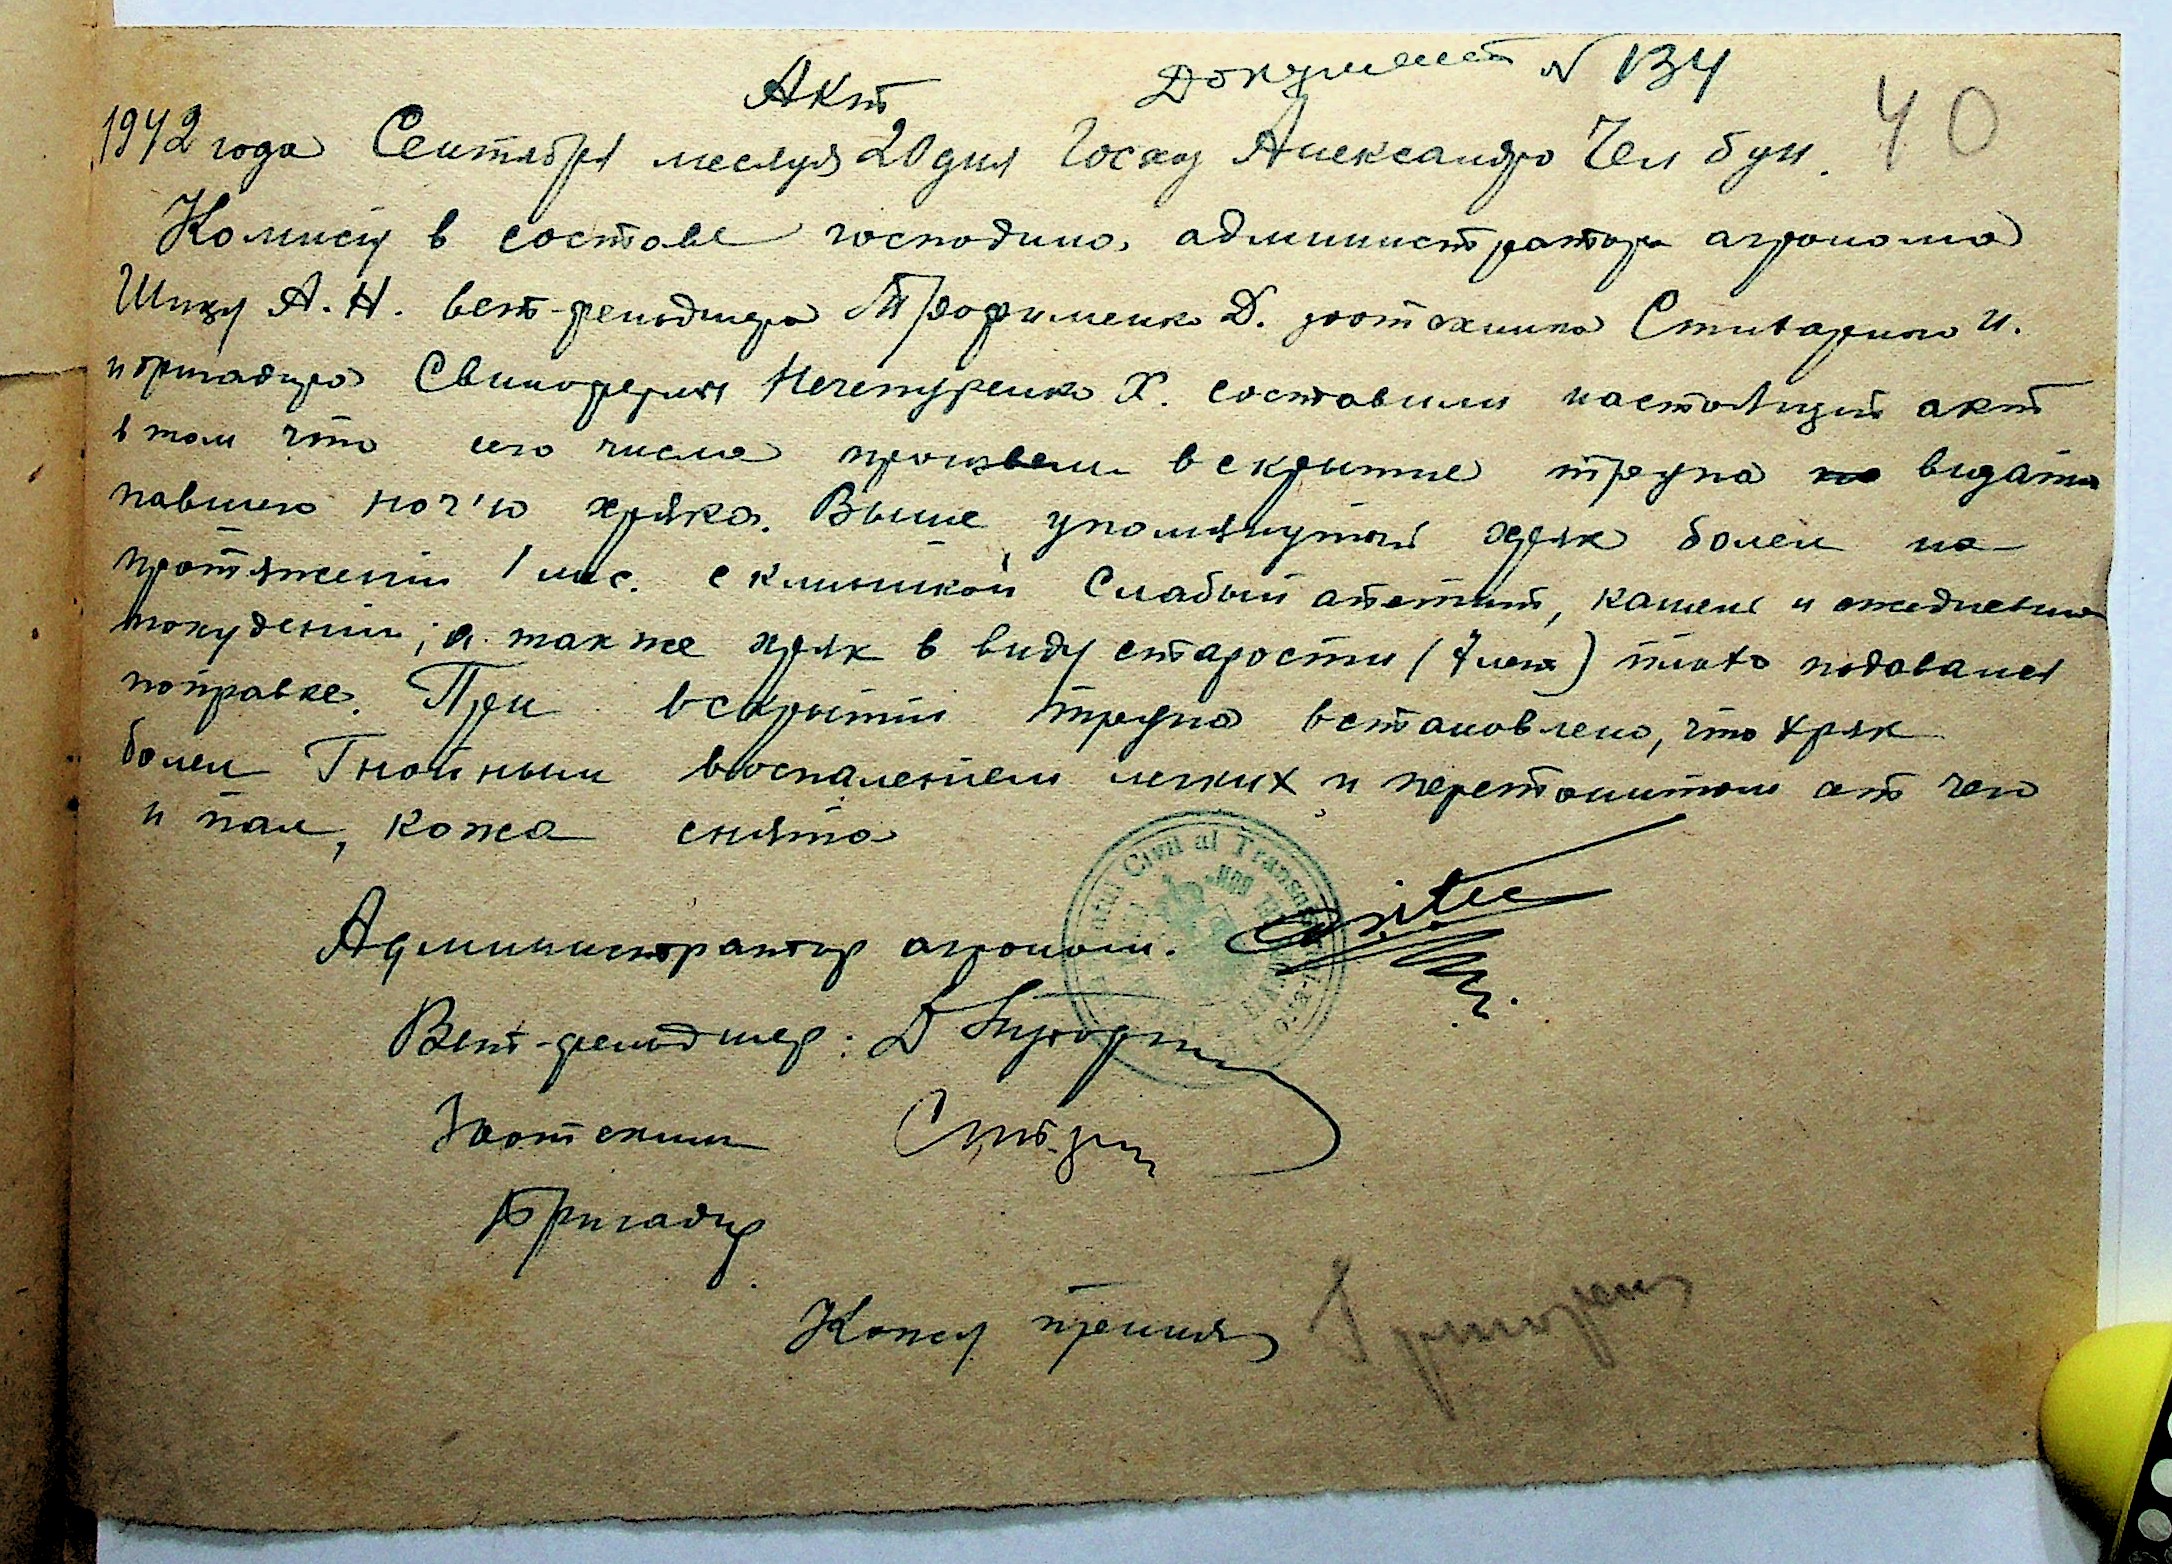 Документ N 134
Акт
40
1942 года Сентября месяца 20 дня Госхоз Александро Чел бун.
Комисия в составе господина администратора агронома
Шижу А.Н. вет-фельдшера Трофименко Д. зоотехника Стиварина И.
и бригадира Свинофермы Нечепуренко Х. составили настоящий акт
в том что сего числа произвели вскрытие трупа видати
павшего ноч'ю хряка. Выше упомянутый хряк болел на
протяжении 1 мес. с клиникой Слабый апетит, кашель и ежедневно
похудении; а также хряк в виду старости (7 лет) плохо подавался
поправке. При вскрытии трупа встановлено, что хряк
болел Гнойным воспалением легких и перетонитом от чего
и пал, кожа снята
Администратор агроном.
Civil al Trans
Вет-фельдшер: Д
Зоотехник
Бригадир
Кожу принял